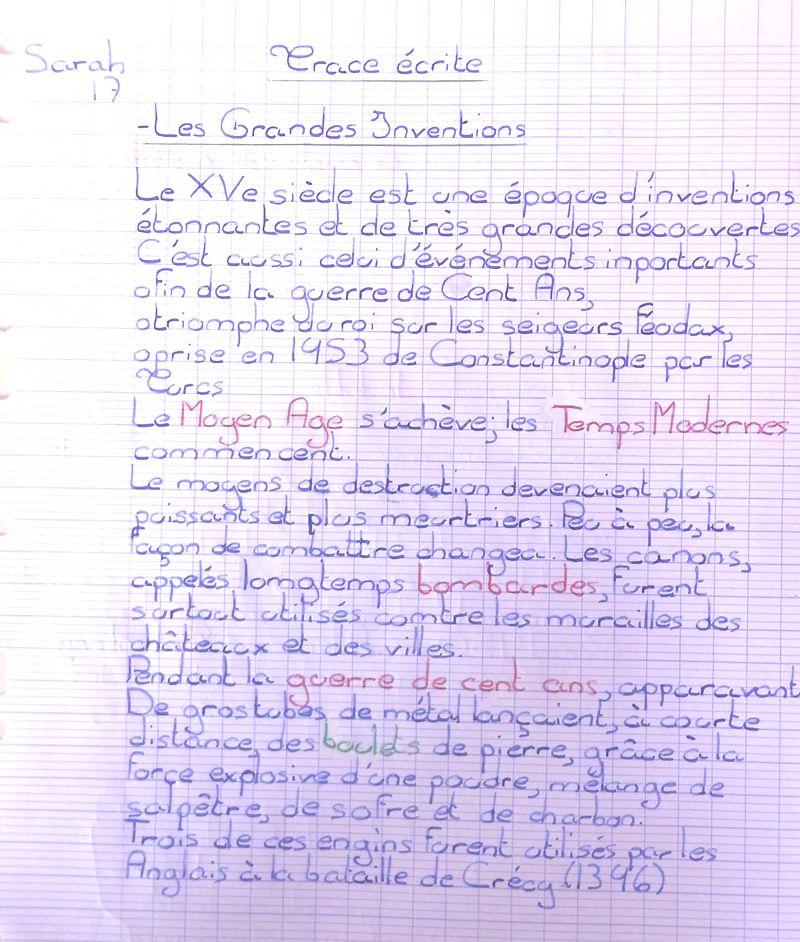 Sarah
17
Trace écrite
-Les Grandes Inventions
Le XVe siècle est une époque d'inventions
étonnantes et de très grandes découvertes
C'est aussi celui d'événements inportants
ofin de la guerre de Cent Ans,
otriomphe du roi sur les seigeurs féodax,
oprise en 1953 de Constantinople par les
Turcs
Le Moyen Age s'achève; les Temps Modernes
commencent.
Le moyens de destruction devenaient plus
puissants et plus meurtriers. Peu à peu, la
façon de combattre changea. Les canons,
appelés lomgtemps bombardes, furent
surtout utilisés comtre les murailles des
châteaux et des villes.
Pendant la guerre de cent ans, apparavant
De gros tubes de métal lançaient, à courte
distance, des boulets de pierre, grâce à la
force explosive d'une poudre, mélange de
salpêtre, de sofre et de charbon.
Trois de ces engins furent utilisés par les
Anglais à la bataille de Crécy (1396)